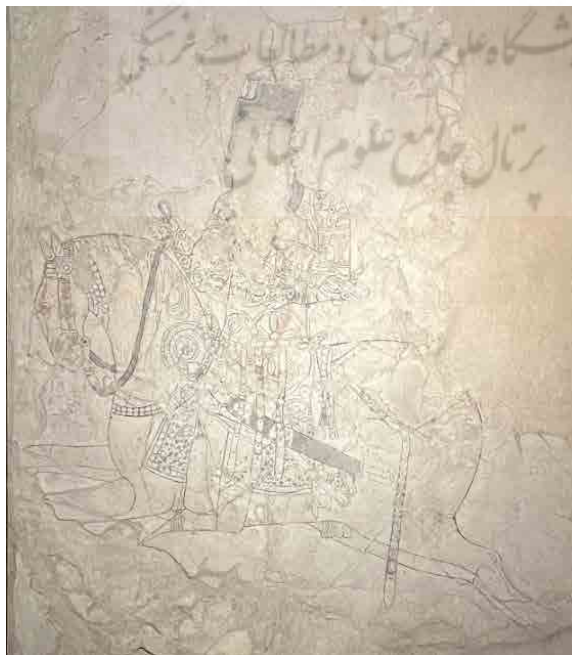 شگاه علوم انسانی و مطالعات فرهنگی
پرتال جامع علوم انسانی